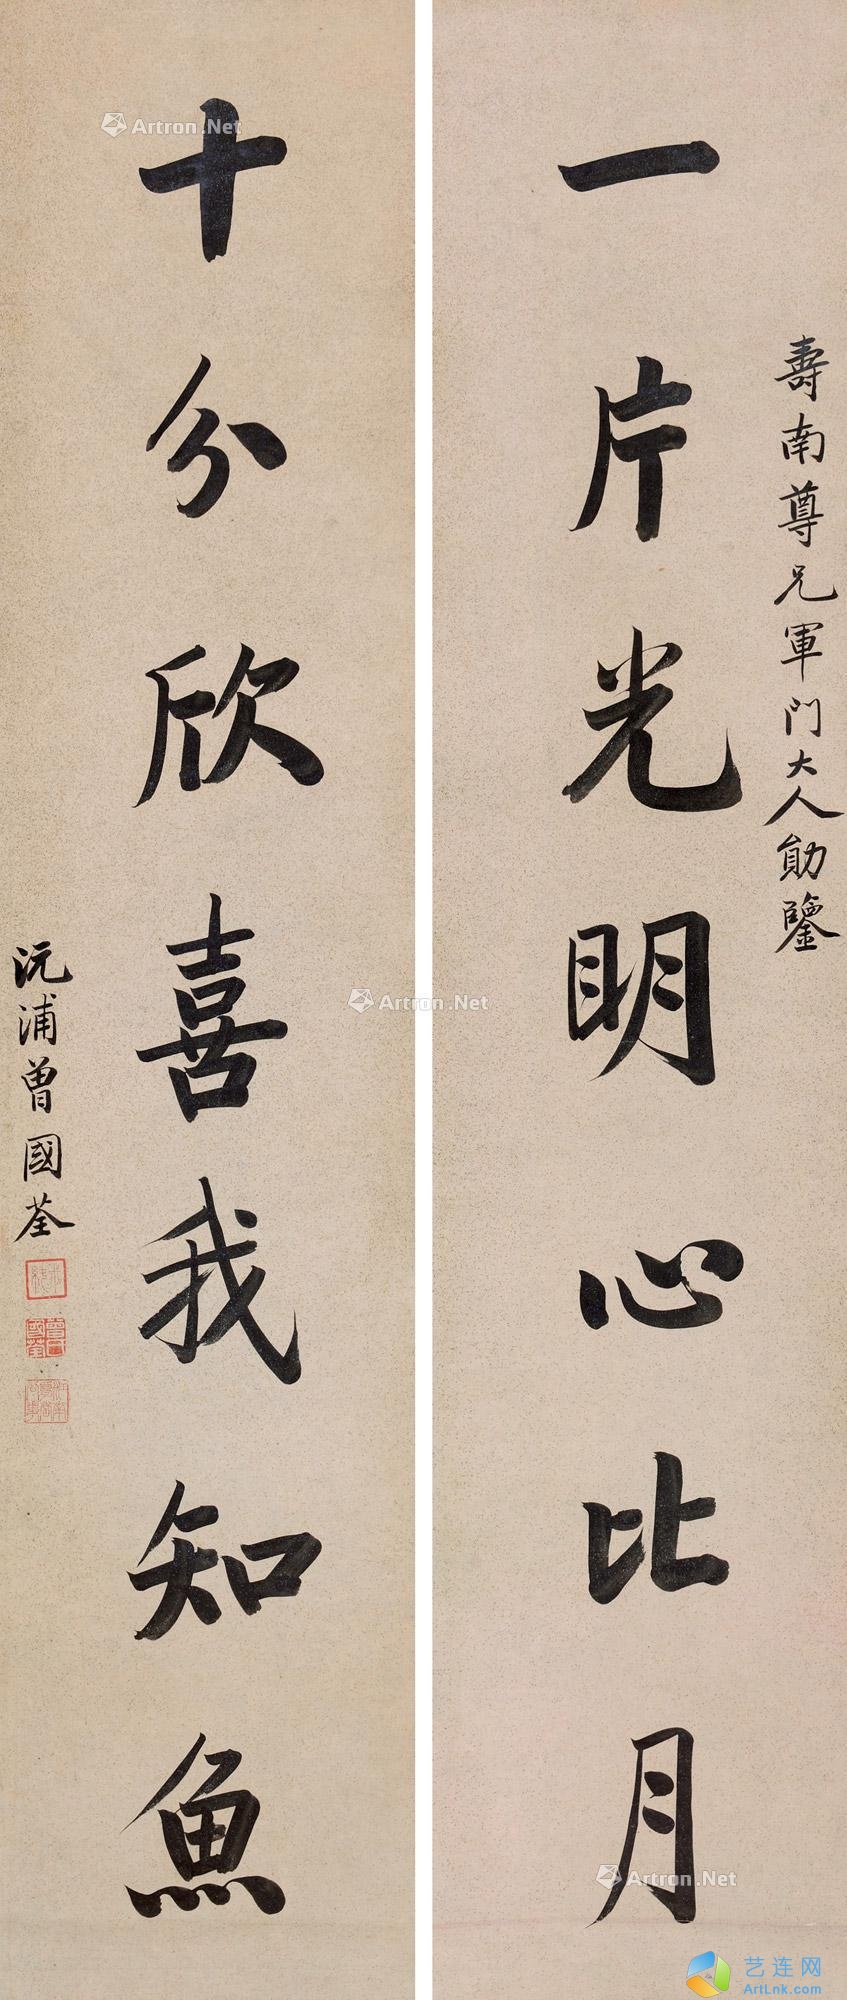 壽南尊兄軍門大人勛鑒
一片光明心比月
十分欣喜我知魚
沅浦曾國荃
曾國荃
Artron.Net
Artron.Net
Artron.Net
Artron.Net
艺连网
ArtLnk.com